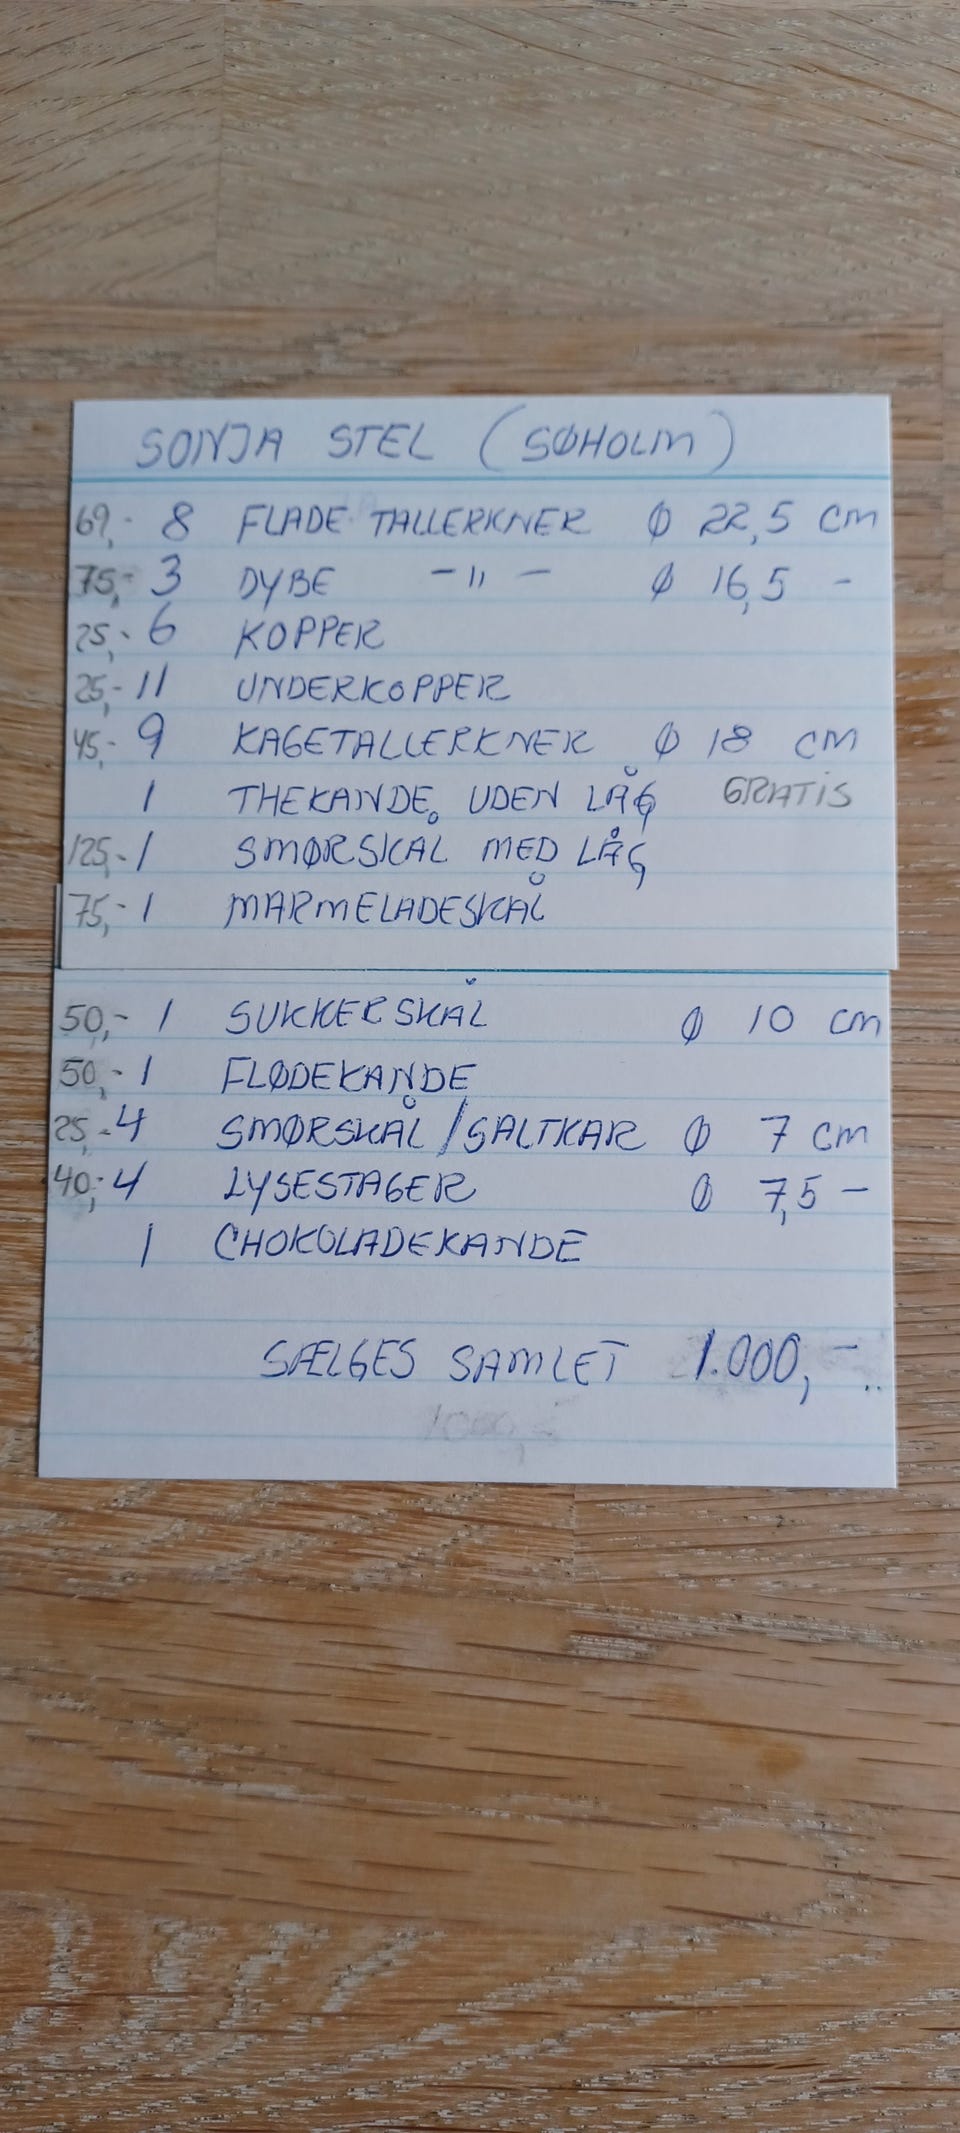 SONJA STEL (SØHOLM)
69,- 8 FLADE TALLERKNER Ø 22,5 CM
75,- 3 DYBE -"- Ø 16,5 -
25,- 6 KOPPER
25,- 11 UNDERKOPPER
45,- 9 KAGETALLERKNER Ø 18 CM
1 THEKANDE UDEN LÅG GRATIS
125,- 1 SMØRSKÅL MED LÅG
75,- 1 MARMELADESKÅL
50,- 1 SUKKERSKÅL Ø 10 CM
50,- 1 FLØDEKANDE
25,- 4 SMØRSKÅL/SALTKAR Ø 7 CM
40,- 4 LYSESTAGER Ø 7,5 -
1 CHOKOLADEKANDE
SÆLGES SAMLET 1.000,-